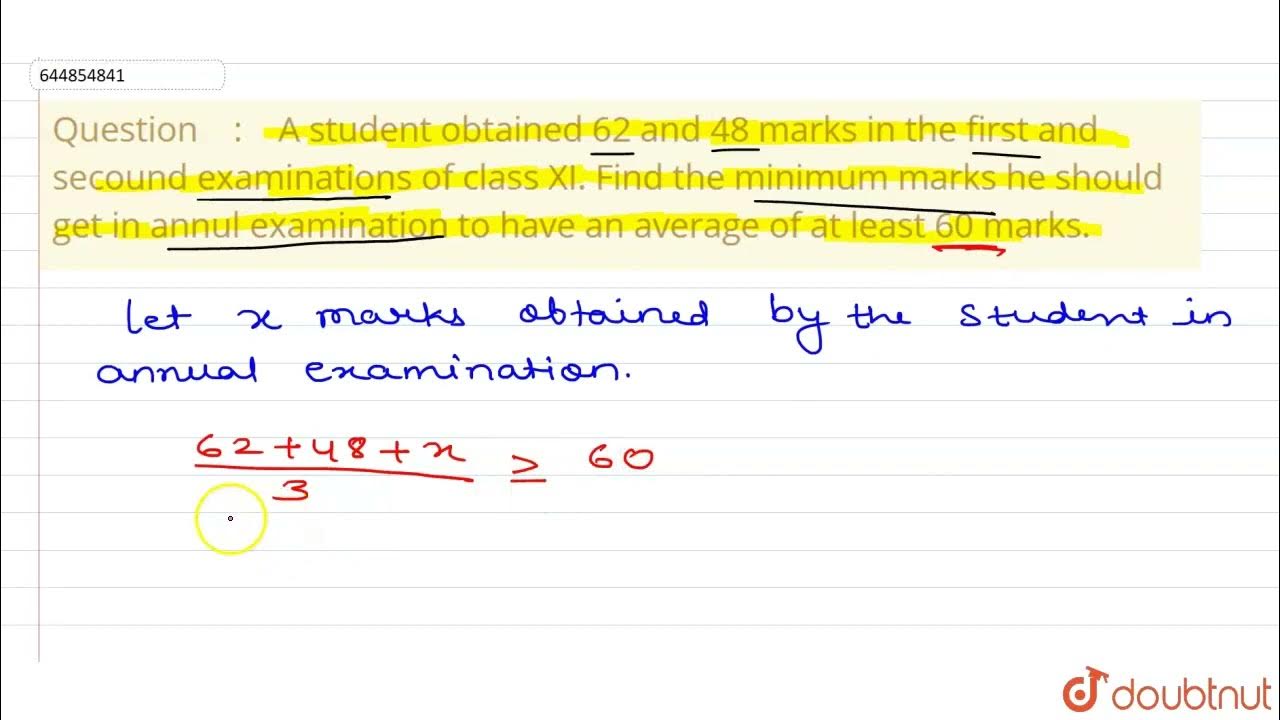 644854841
Question : A student obtained 62 and 48 marks in the first and
secound examinations of class XI. Find the minimum marks he should
get in annul examination to have an average of at least 60 marks.
Let x marks obtained by the student in
annual examination.
62+48+x
≥ 60
3
doubtnut